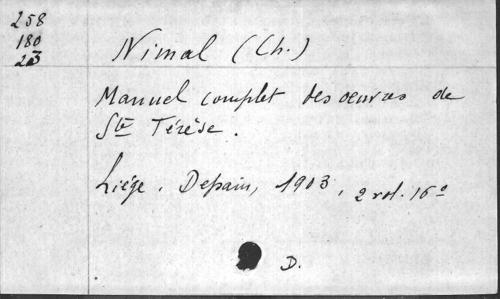 258
180
23
Nimal (Ch.)
Manuel complet des œuvres de
Ste Térèse.
Liége. Dessain, 1903, 2 vol. 16°
D.